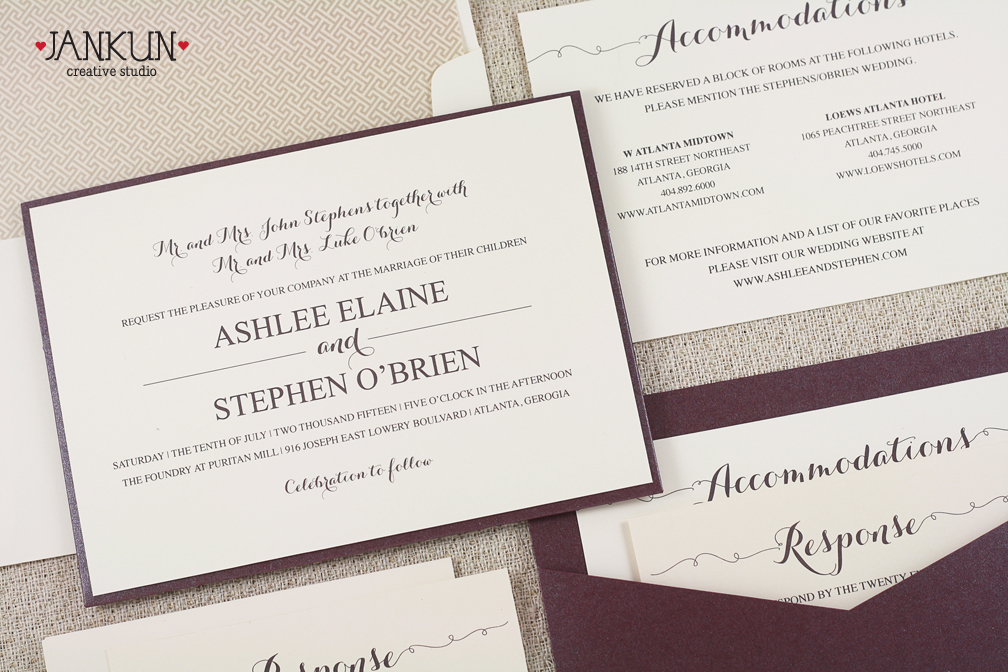 JANKUN
creative studio
Mr and Mrs John Stephens together with
Mr and Mrs Luke O'brien
REQUEST THE PLEASURE OF YOUR COMPANY AT THE MARRIAGE OF THEIR CHILDREN
ASHLEE ELAINE
and
STEPHEN O'BRIEN
SATURDAY | THE TENTH OF JULY | TWO THOUSAND FIFTEEN | FIVE O'CLOCK IN THE AFTERNOON
THE FOUNDRY AT PURITAN MILL | 916 JOSEPH EAST LOWERY BOULVARD | ATLANTA, GEROGIA
Celebration to follow
Accommodations
WE HAVE RESERVED A BLOCK OF ROOMS AT THE FOLLOWING HOTELS.
PLEASE MENTION THE STEPHENS/OBRIEN WEDDING.
W ATLANTA MIDTOWN
188 14TH STREET NORTHEAST
ATLANTA, GEORGIA
404.892.6000
WWW.ATLANTAMIDTOWN.COM
LOEWS ATLANTA HOTEL
1065 PEACHTREE STREET NORTHEAST
ATLANTA, GEORGIA
404.745.5000
WWW.LOEWSHOTELS.COM
FOR MORE INFORMATION AND A LIST OF OUR FAVORITE PLACES
PLEASE VISIT OUR WEDDING WEBSITE AT
WWW.ASHLEEANDSTEPHEN.COM
Accommodations
Response
SPOND BY THE TWENTY
Response